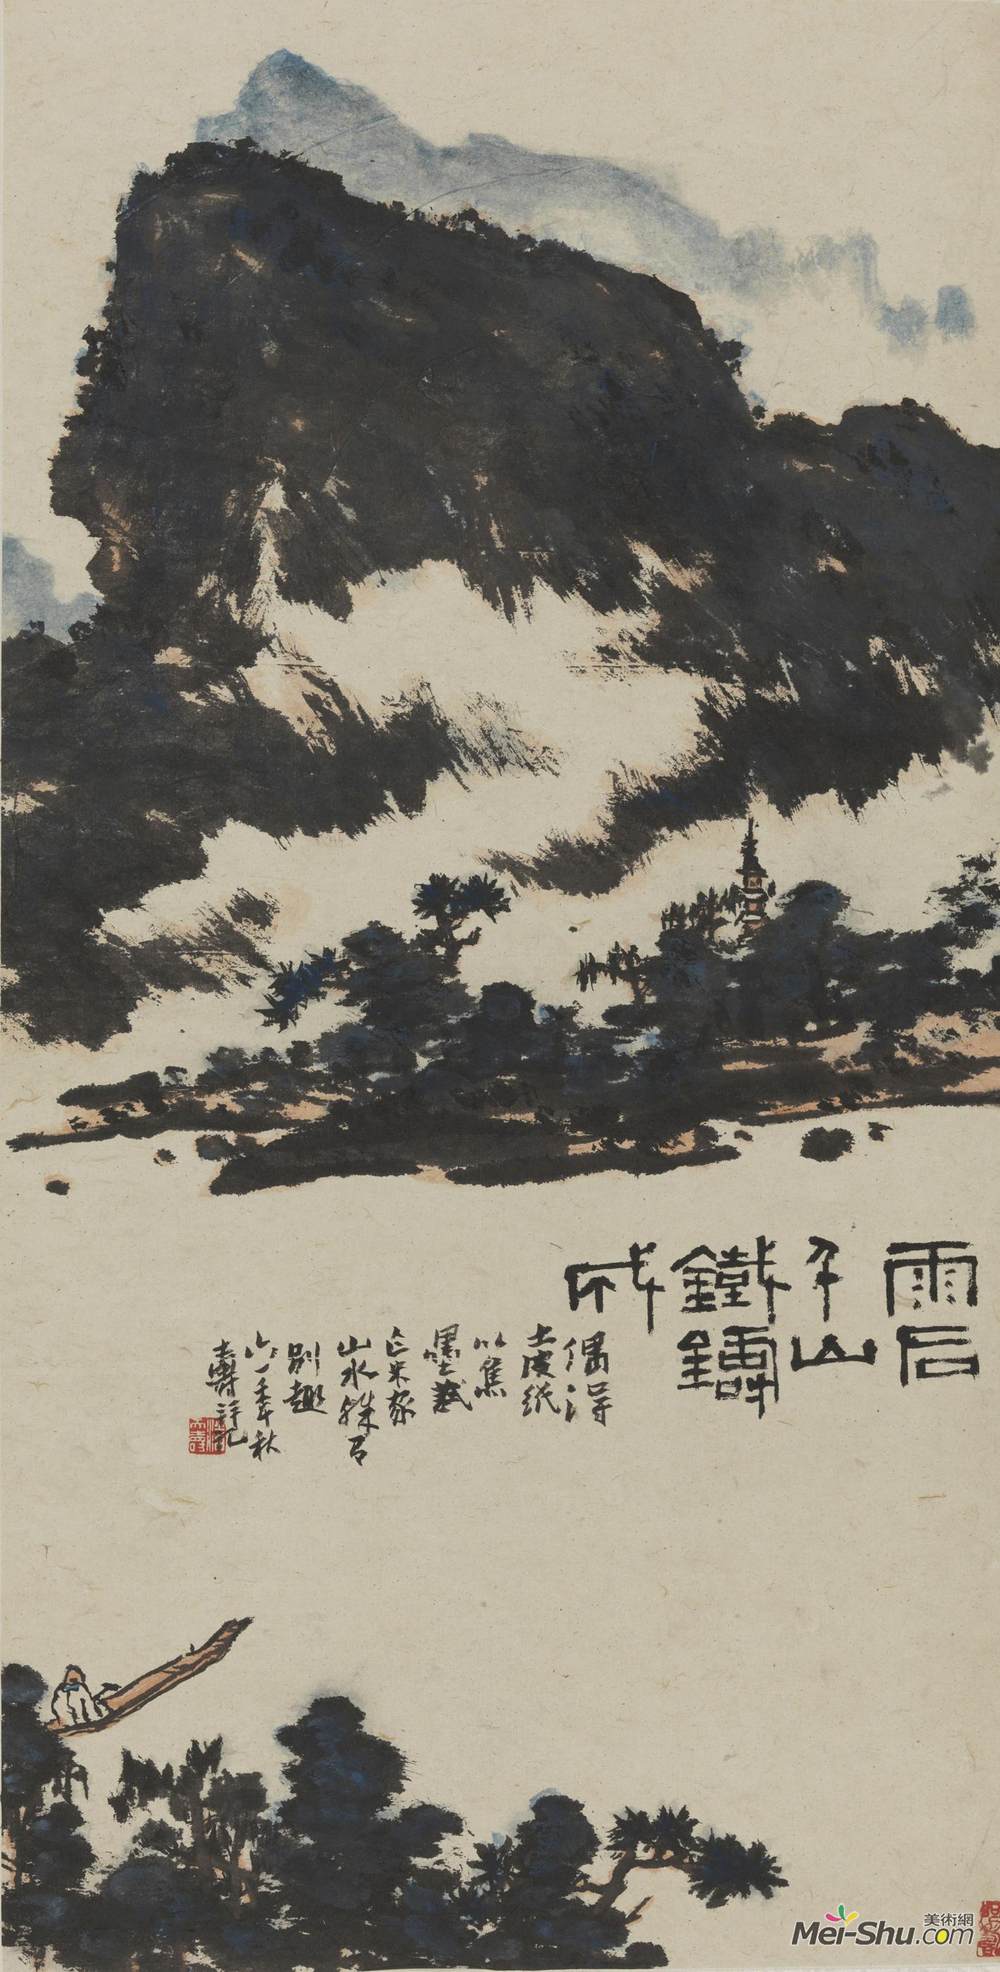 雨后
千山
鐵鑄
成
偶得
土皮纸
以焦
墨試
米家
山水殊有
别趣
六一年秋
壽
美術網
Mei-Shu.com